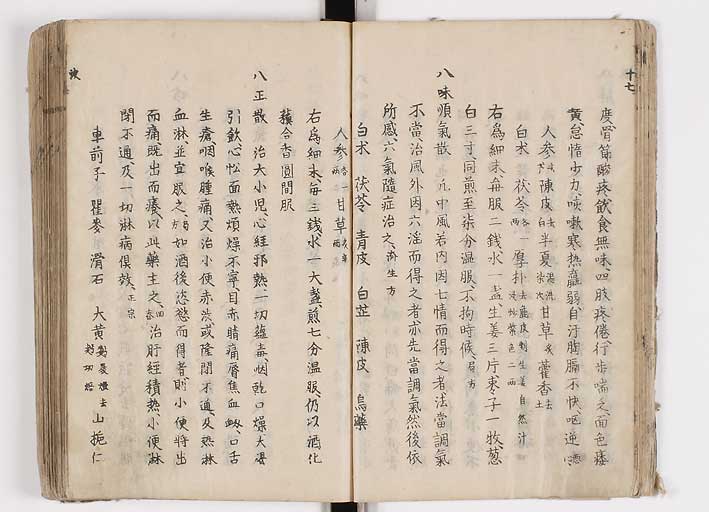 十七
度骨節酸疼飲食無味四肢疼倦行步喘乏面色痿
黄怠惰少力咳嗽寒热羸弱自汗胸膈不快呕逆
人參 陳皮去白 半夏湯洗七次 甘草炙 藿香去土
白术 茯苓各一兩 厚朴去麁皮剉生姜自然汁浸炒紫色二兩
右爲細末每服二錢水一盞生姜三片枣子一枚葱
白三寸同煎至柒分温服不拘時候局方
八味順氣散 凡中風若内因七情而得之者法當調氣
不當治風外因六淫而得之者亦先當調氣然後依
所感六氣隨症治之濟生方
白术 茯苓 青皮 白芷 陳皮 烏藥
人參各一兩 甘草
右爲細末每三錢水一大盞煎七分温服仍以酒化
蘇合香圓間服
八正散 治大小児心經邪熱一切蘊毒咽乾口燥大渴
引飲心忪面熱煩燥不寧目赤睛痛唇焦血衄口舌
生瘡咽喉腫痛又治小便赤澁或隆閉不通及热淋
血淋並宜服之局方如酒後恣慾而得者則小便將出
而痛既出而癢以此藥主之 治肝經積热小便淋
閉不通及一切淋病俱效正宗
車前子 瞿麥 滑石 大黄 山梔仁